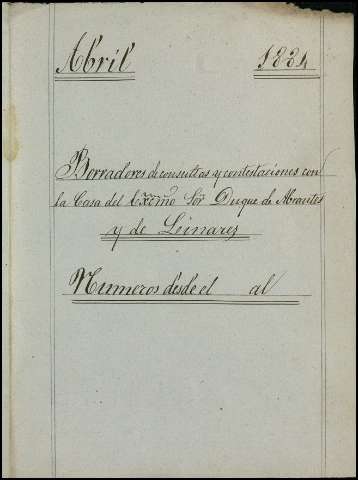 Abril 1834
Borradores de consultas y contestaciones con
la Casa del Excmo Sor Duque de Abrantes
y de Linares
Numeros desde el al